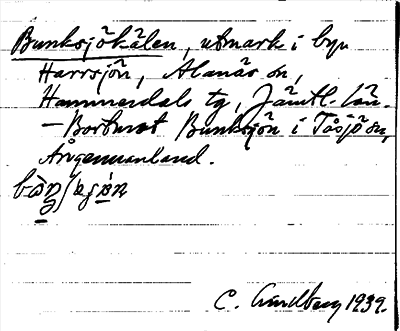 Bunksjökälen, utmark i byn
Harrsjön, Alanäs sn,
Hammerdals tg, Jämtl. län.
– Bortmot Bunksjön i Tåsjö sn,
Ångermanland.
C. Lindberg 1939.